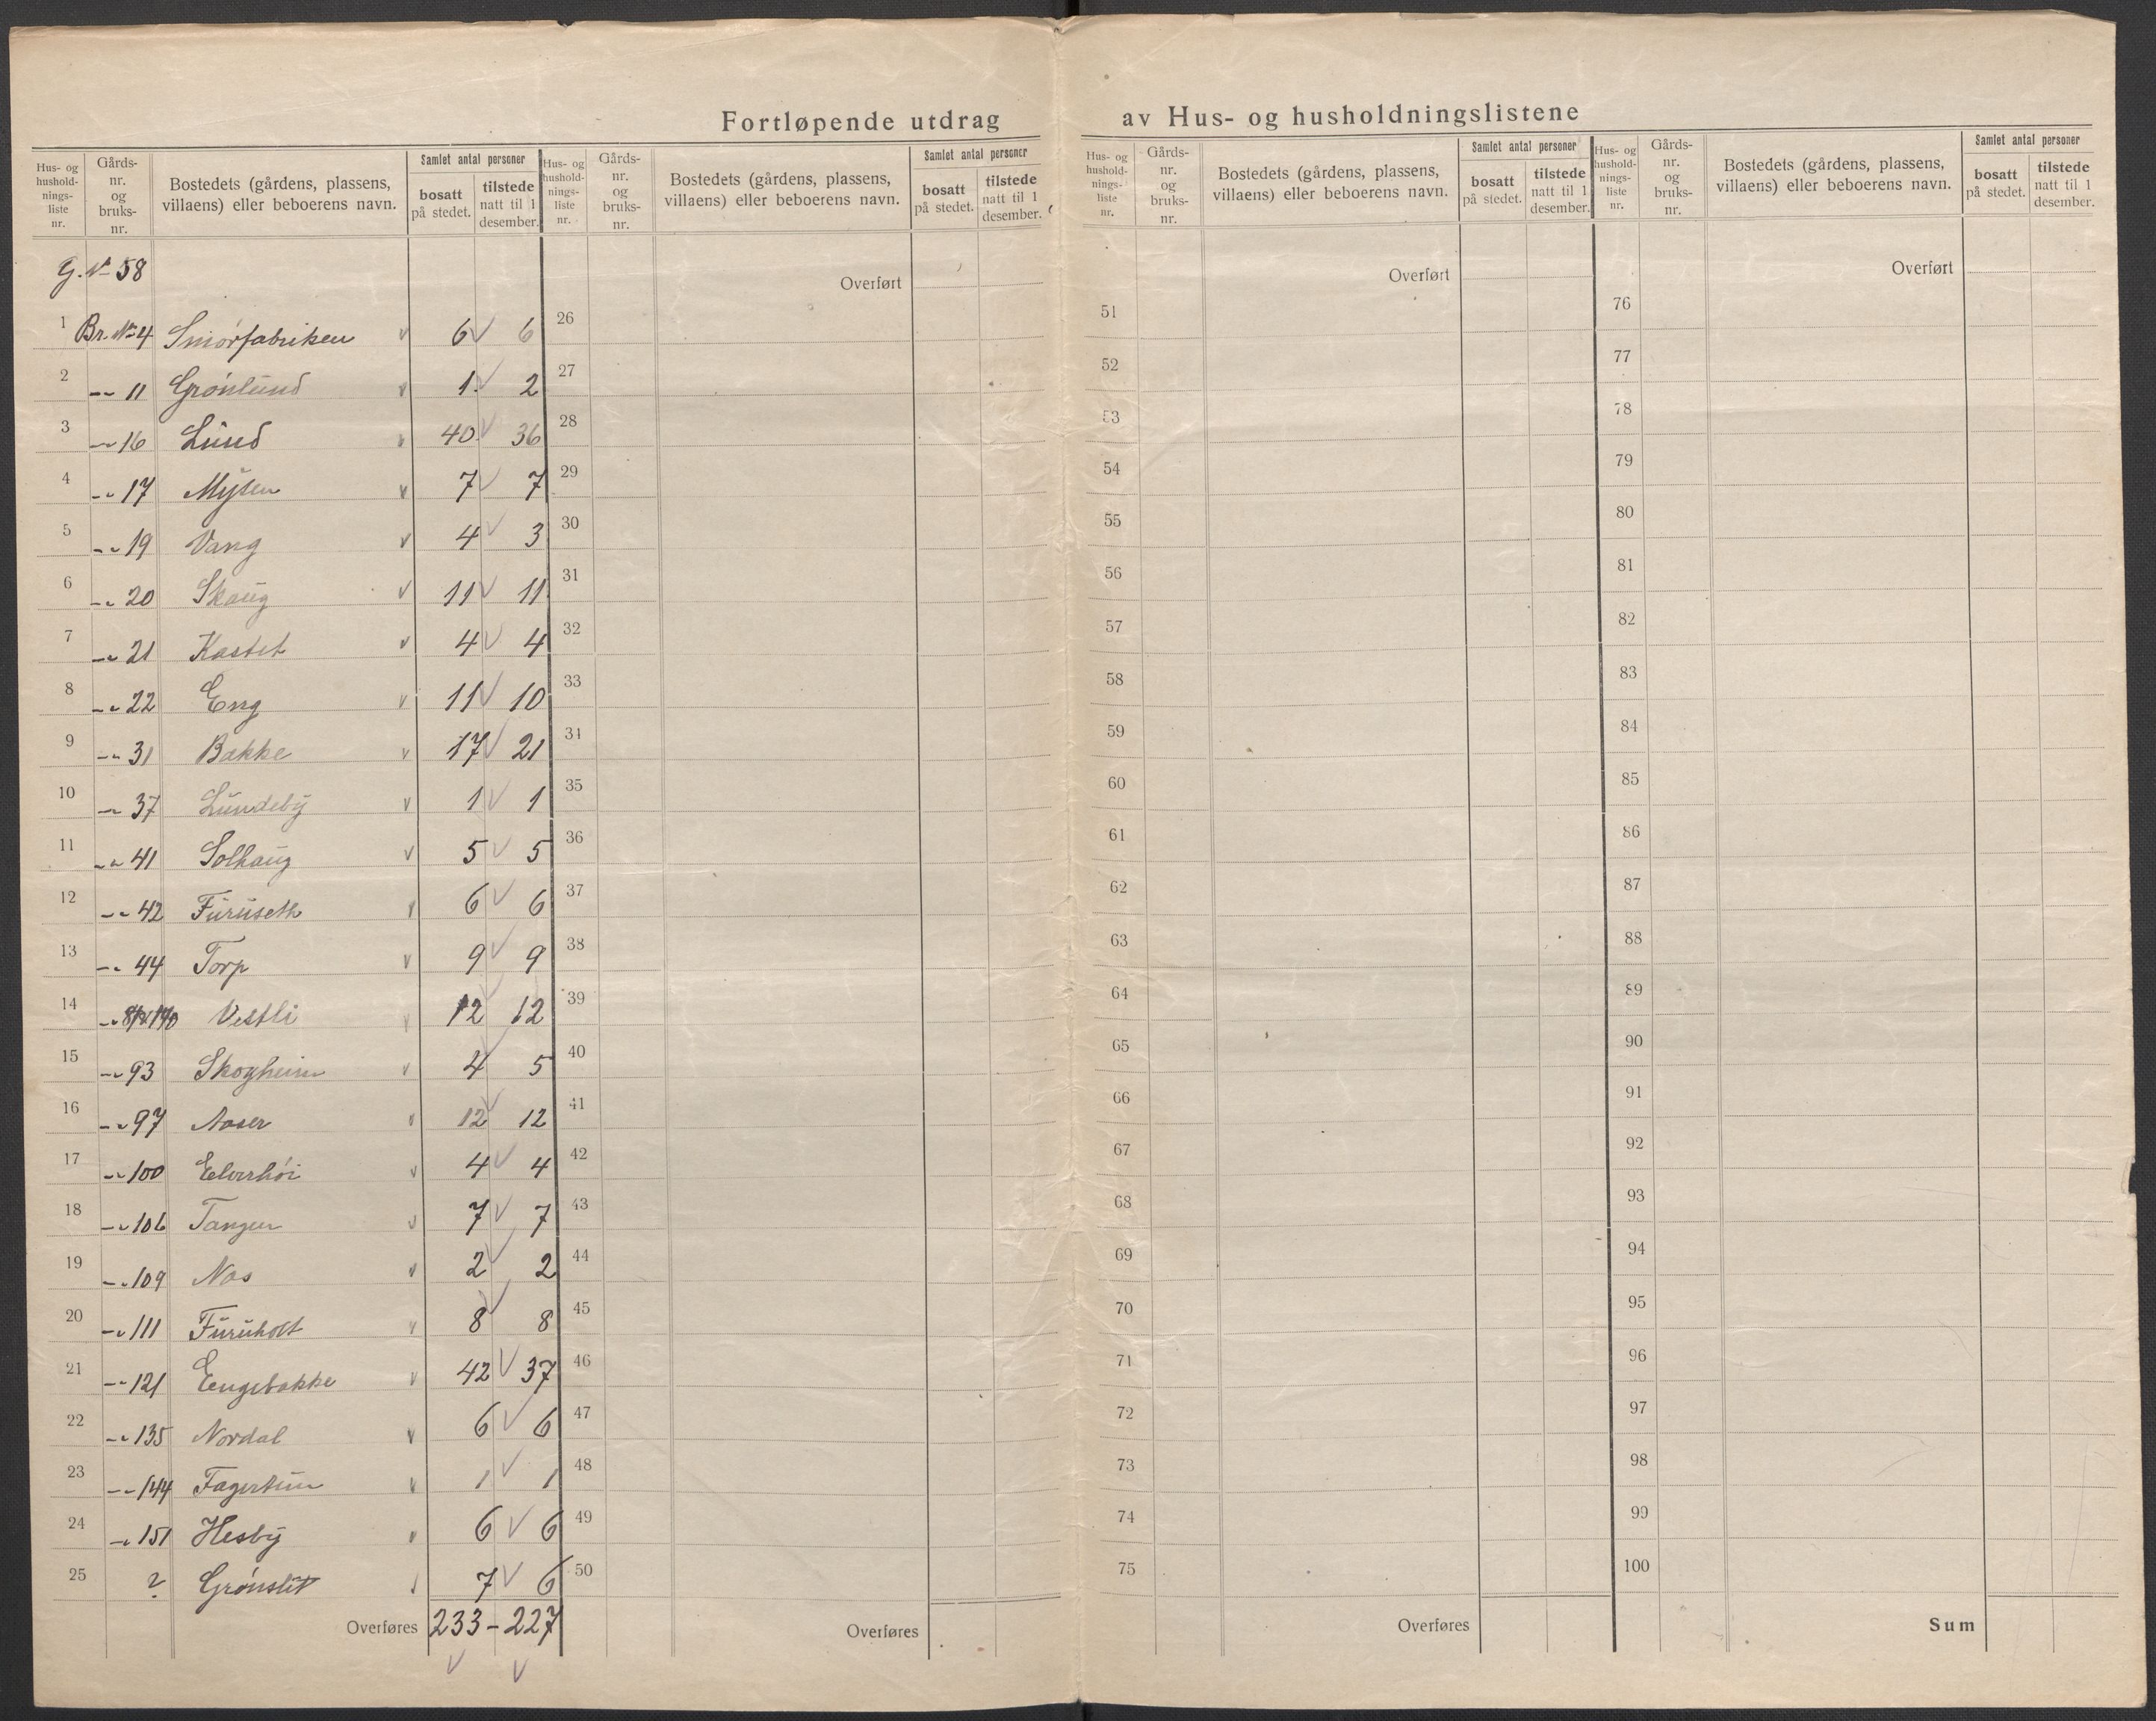 Fortløpende utdrag av Hus- og husholdningslistene
Hus- og hushold-nings-liste nr. | Gårds-nr. og bruks-nr. | Bostedets (gårdens, plassens, villaens) eller beboerens navn. | Samlet antal personer | bosatt på stedet. | tilstede natt til 1 desember.
Hus- og hushold-nings-liste nr. | Gårds-nr. og bruks-nr. | Bostedets (gårdens, plassens, villaens) eller beboerens navn. | Samlet antal personer | bosatt på stedet. | tilstede natt til 1 desember.
Hus- og hushold-nings-liste nr. | Gårds-nr. og bruks-nr. | Bostedets (gårdens, plassens, villaens) eller beboerens navn. | Samlet antal personer | bosatt på stedet. | tilstede natt til 1 desember.
Hus- og hushold-nings-liste nr. | Gårds-nr. og bruks-nr. | Bostedets (gårdens, plassens, villaens) eller beboerens navn. | Samlet antal personer | bosatt på stedet. | tilstede natt til 1 desember.
G. № 58 Overført Overført Overført
1 Br. № 4 Smörfabriken 6 6 26 51 76
2 -"- 11 Grönlund 1 2 27 52 77
3 -"- 16 Lund 40 36 28 53 78
4 -"- 17 Mysen 7 7 29 54 79
5 -"- 19 Vang 4 3 30 55 80
6 -"- 20 Skaug 11 11 31 56 81
7 -"- 21 Kastet 4 4 32 57 82
8 -"- 22 Eng 11 10 33 58 83
9 -"- 31 Bakke 17 21 34 59 84
10 -"- 37 Lundeby 1 1 35 60 85
11 -"- 41 Solhaug 5 5 36 61 86
12 -"- 42 Furuseth 6 6 37 62 87
13 -"- 44 Torp 9 9 38 63 88
14 Vestli 12 12 39 64 89
15 -"- 93 Skogheim 4 5 40 65 90
16 -"- 97 Aaser 12 12 41 66 91
17 -"- 100 4 4 42 67 92
18 -"- 106 Tangen 7 7 43 68 93
19 -"- 109 Nas 2 2 44 69 94
20 -"- 111 Furuholt 8 8 45 70 95
21 -"- 121 Engebakke 42 37 46 71 96
22 -"- 135 Nordal 6 6 47 72 97
23 -"- 144 Fagertun 1 1 48 73 98
24 -"- 151 Hesby 6 6 49 74 99
25 ? Grönslit 7 6 50 75 100
Overføres 233 - 227 Overføres Overføres Sum